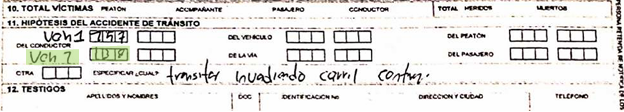 10. TOTAL VÍCTIMAS PEATÓN ACOMPAÑANTE PASAJERO CONDUCTOR TOTAL HERIDOS MUERTOS
11. HIPÓTESIS DEL ACCIDENTE DE TRÁNSITO
Veh 1 157 DEL VEHICULO DEL PEATÓN
DEL CONDUCTOR
Veh 2 DE LA VÍA DEL PASAJERO
OTRA ESPECIFICAR ¿CUAL? transitar invadiendo carril contr.
12. TESTIGOS
APELLIDOS Y NOMBRES DOC IDENTIFICACIÓN No DIRECCION Y CIUDAD TELÉFONO